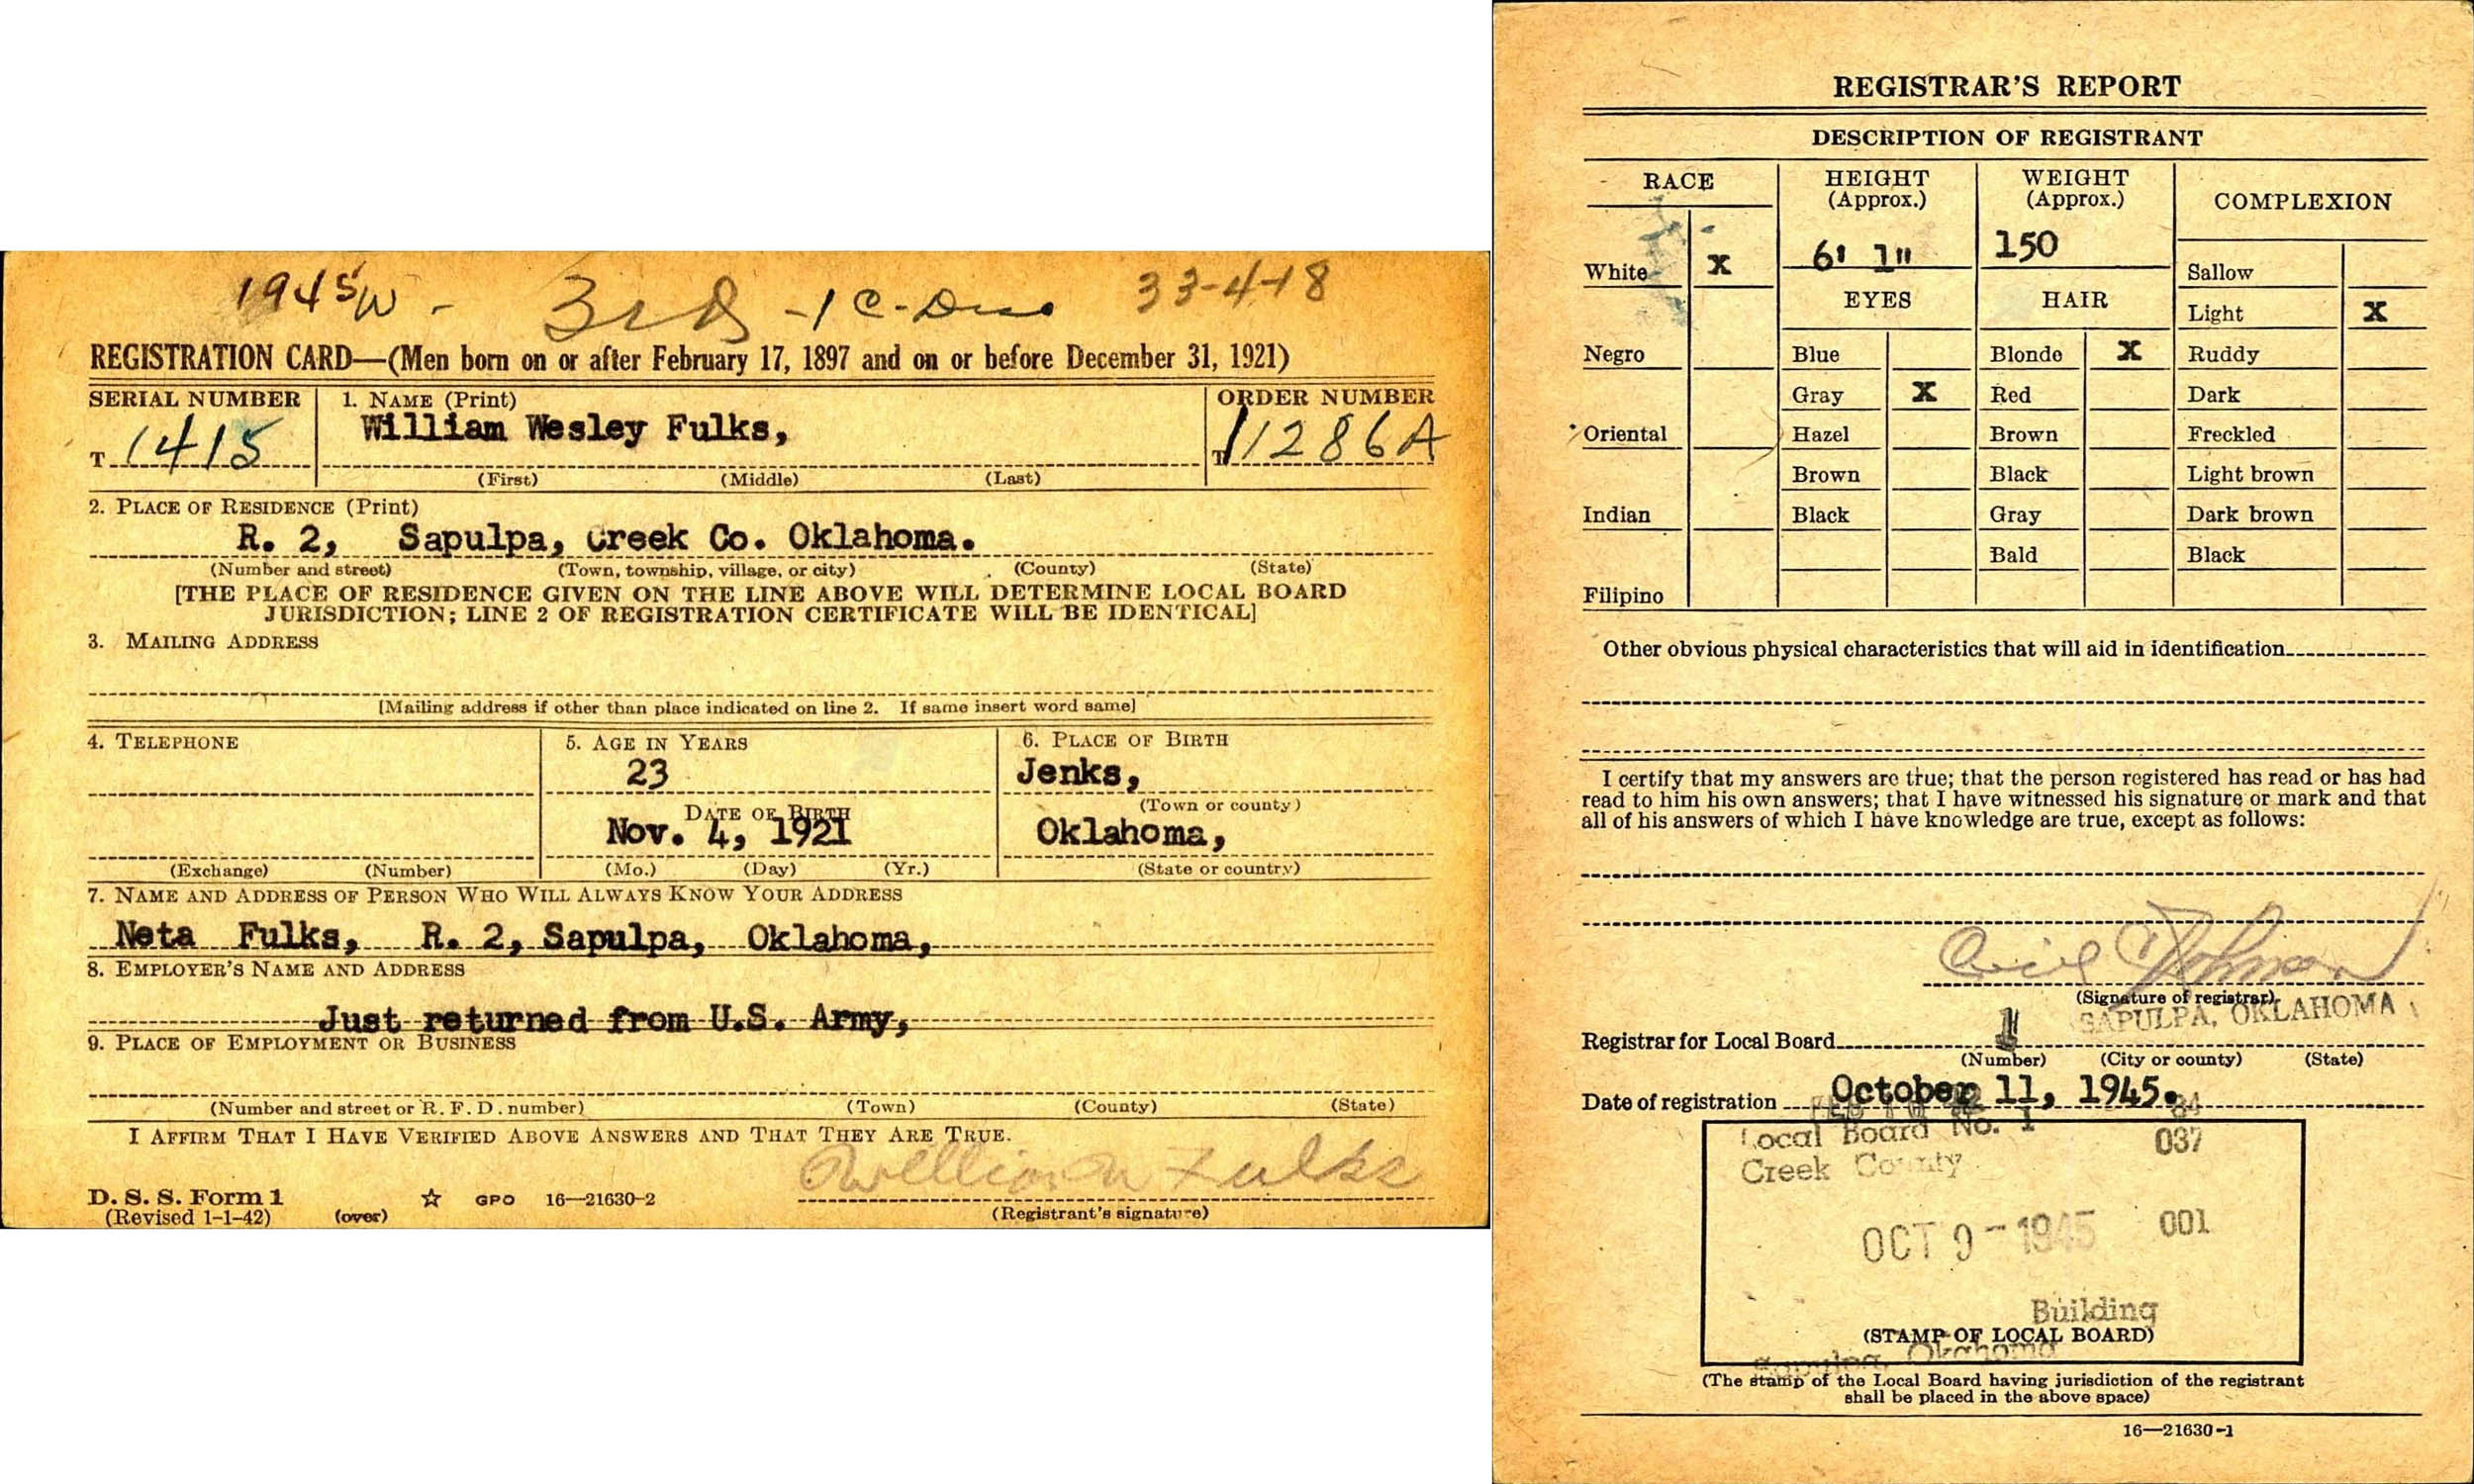 1945 W - 3rd - 1C-Disc 33-4-18
REGISTRATION CARD—(Men born on or after February 17, 1897 and on or before December 31, 1921)
SERIAL NUMBER 1. NAME (Print) ORDER NUMBER
William Wesley Fulks,
T 1415 T 11286A
(First) (Middle) (Last)
2. PLACE OF RESIDENCE (Print)
R. 2, Sapulpa, Creek Co. Oklahoma.
(Number and street) (Town, township, village, or city) (County) (State)
[THE PLACE OF RESIDENCE GIVEN ON THE LINE ABOVE WILL DETERMINE LOCAL BOARD
JURISDICTION; LINE 2 OF REGISTRATION CERTIFICATE WILL BE IDENTICAL]
3. MAILING ADDRESS
[Mailing address if other than place indicated on line 2. If same insert word same]
4. TELEPHONE 5. AGE IN YEARS 6. PLACE OF BIRTH
23 Jenks,
DATE OF BIRTH (Town or county)
Nov. 4, 1921 Oklahoma,
(Exchange) (Number) (Mo.) (Day) (Yr.) (State or country)
7. NAME AND ADDRESS OF PERSON WHO WILL ALWAYS KNOW YOUR ADDRESS
Neta Fulks, R. 2, Sapulpa, Oklahoma,
8. EMPLOYER'S NAME AND ADDRESS
Just returned from U.S. Army,
9. PLACE OF EMPLOYMENT OR BUSINESS
(Number and street or R. F. D. number) (Town) (County) (State)
I AFFIRM THAT I HAVE VERIFIED ABOVE ANSWERS AND THAT THEY ARE TRUE.
William Fulks
D. S. S. Form 1 ☆ GPO 16—21630-2
(Revised 1-1-42) (over) (Registrant's signature)
REGISTRAR'S REPORT
DESCRIPTION OF REGISTRANT
RACE HEIGHT (Approx.) WEIGHT (Approx.) COMPLEXION
White X 6' 1" 150 Sallow
EYES HAIR Light X
Negro Blue Blonde X Ruddy
Gray X Red Dark
Oriental Hazel Brown Freckled
Brown Black Light brown
Indian Black Gray Dark brown
Bald Black
Filipino
Other obvious physical characteristics that will aid in identification
I certify that my answers are true; that the person registered has read or has had
read to him his own answers; that I have witnessed his signature or mark and that
all of his answers of which I have knowledge are true, except as follows:
(Signature of registrar)
SAPULPA, OKLAHOMA
Registrar for Local Board 1
(Number) (City or county) (State)
Date of registration October 11, 1945.
Local Board No. 1 037
Creek County
OCT 9 - 1945 001
Building
(STAMP OF LOCAL BOARD)
Sapulpa, Okahoma
(The stamp of the Local Board having jurisdiction of the registrant
shall be placed in the above space)
16—21630-1